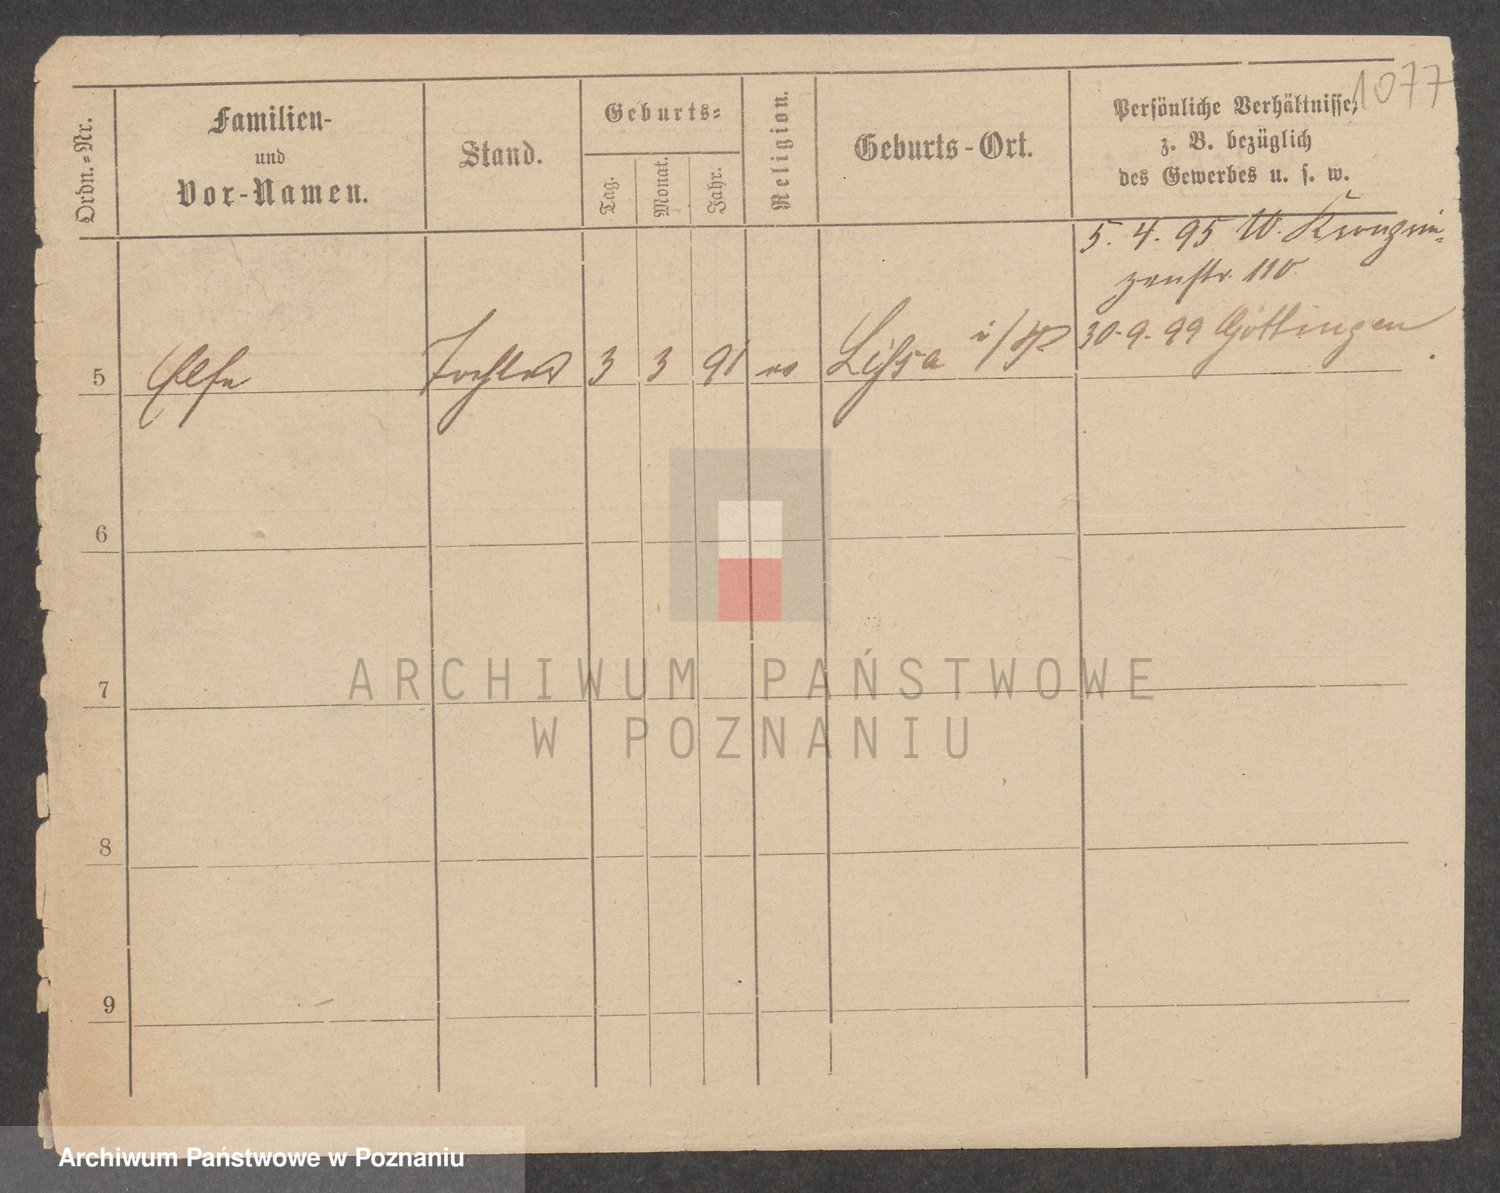 1077
Ordn.=Nr.
Familien-
und
Vor-Namen.
Stand.
Geburts=
Tag.
Monat.
Jahr.
Religion.
Geburts-Ort.
Persönliche Verhältnisse,
z. B. bezüglich
des Gewerbes u. s. w.
5. 4. 95 W. Kronprin=
zenstr. 110
30. 9. 99 Göttingen
5 Else Tochter 3 3 91 ev Lissa i/P
6
7
8
9
ARCHIWUM PAŃSTWOWE
W POZNANIU
Archiwum Państwowe w Poznaniu